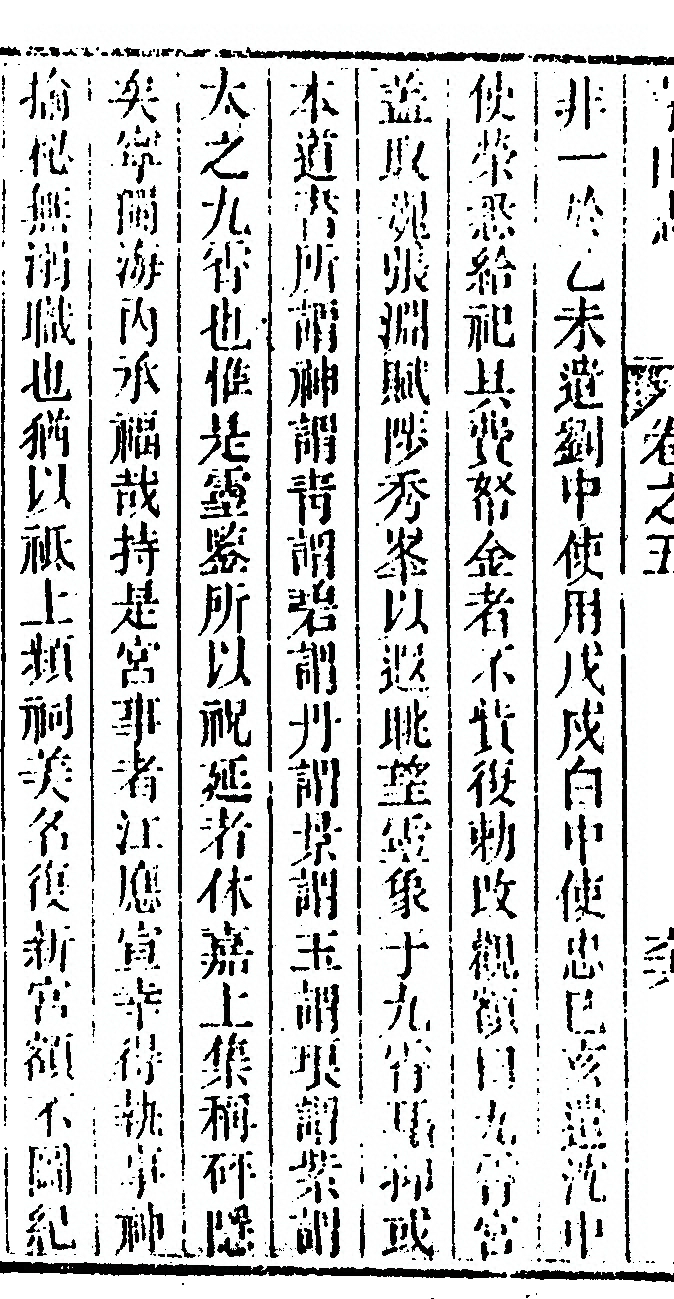 卷之五
非一於乙未遣劉中使用戊戌白中使忠己亥遣沈中
使荣恭給祀具費帑金者不貲復勑改觀額曰九霄宮
蓋取張淵賦陟秀峯以遐眺望靈象于九霄耶抑或
本道書所謂神謂青謂碧謂丹謂景謂玉謂琅謂紫謂
太之九霄也惟是靈墨所以祝延者休嘉上集稱碑隱
矣寧闔海內承福哉持是宮事者江應宣幸得執事神
揄祀無溺職也猶以祗上類祠美名復新宮額不圖紀